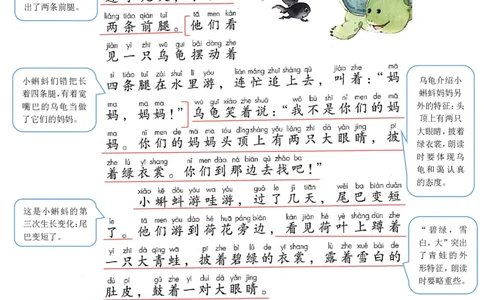 出了两条前腿。
liǎng tiáo qián tuǐ tā men kàn
两条前腿。他们看
jiàn yì zhī wū guī bǎi dòng zhe
见一只乌龟摆动着
sì tiáo tuǐ zài shuǐ lǐ yóu lián máng zhuī shàng qù jiào zhe mā
四条腿在水里游，连忙追上去，叫着：“妈
mā mā ma wū guī xiào zhe shuō wǒ bú shì nǐ men de mā
妈，妈妈！”乌龟笑着说：“我不是你们的妈
ma nǐ men de mā ma tóu dǐng shàng yǒu liǎng zhī dà yǎn jing pī
妈。你们的妈妈头顶上有两只大眼睛，披
zhe lǜ yī shang nǐ men dào nà biān qù zhǎo ba
着绿衣裳。你们到那边去找吧！”
xiǎo kē dǒu yóu wa yóu guò le jǐ tiān wěi ba biàn duǎn
小蝌蚪游哇游，过了几天，尾巴变短
le tā men yóu dào hé huā páng biān kàn jiàn hé yè shàng dūn zhe
了。他们游到荷花旁边，看见荷叶上蹲着
yì zhī dà qīng wā pī zhe bì lǜ de yī shang lù zhe xuě bái de
一只大青蛙，披着碧绿的衣裳，露着雪白的
dù pí gǔ zhe yí duì dà yǎn jing
肚皮，鼓着一对大眼睛。
小蝌蚪们错把长
着四条腿，有着宽
嘴巴的乌龟当做
了它们的妈妈。
这是小蝌蚪的第
三次生长变化：尾
巴变短了。
乌龟介绍小
蝌蚪妈妈另
外的特征：头
顶上有两只
大眼睛，披着
绿衣裳，朗读
时要体现乌
龟和蔼认真
的态度。
“碧绿，雪
白，大”突出
了青蛙的外
形特征，朗读
时要略重些。